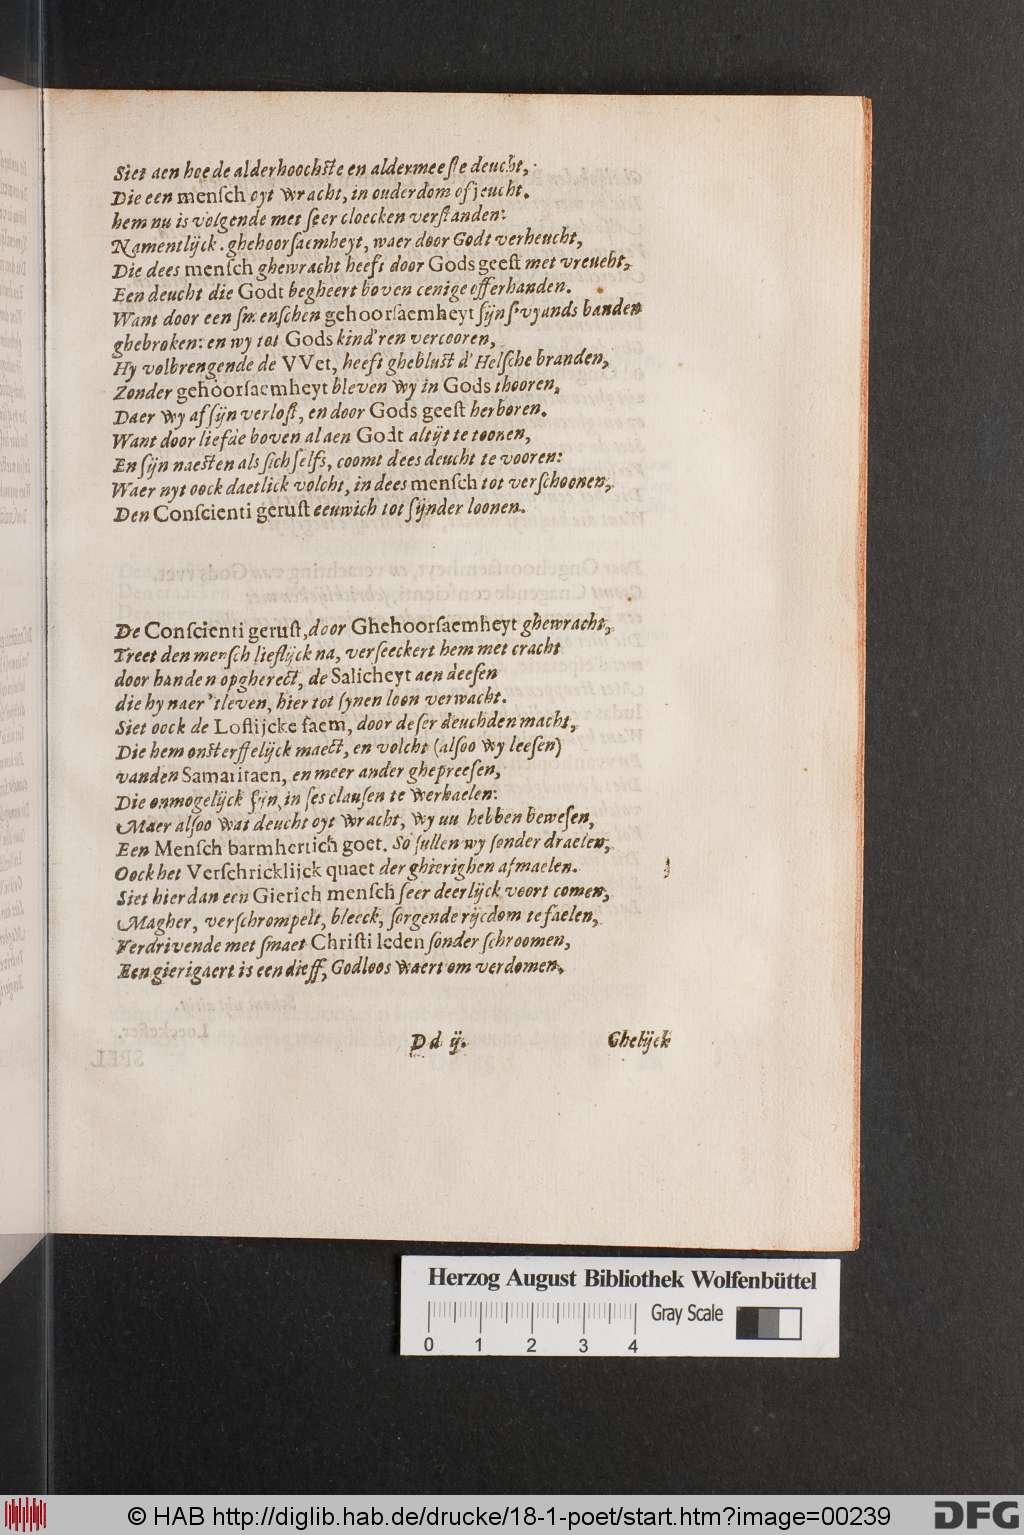 Siet aen hoe de alderhoochste en aldermeeste deucht,
Die een menſch oyt wracht, in ouderdom of jeucht.
hem nu is volgende met ſeer cloecken verſtanden:
Namentlijck. ghehoorſaemheyt, waer door Godt verheucht,
Die dees menſch ghewracht heeft door Gods geeſt met vreucht,
Een deucht die Godt begheert boven eenige offerhanden.
Want door een ſmenſchen gehoorſaemheyt ſijn ſ'vyands banden
ghebroken: en wy tot Gods kind'ren vercooren,
Hy volbrengende de VVet, heeft gheblust d'Helſche branden,
Zonder gehoorſaemheyt bleven wy in Gods thooren,
Daer wy af ſijn verloſt, en door Gods geeſt herboren.
Want door liefde boven al aen Godt altijt te toonen,
En ſijn naesten als ſich ſelfs, coomt dees deucht te vooren:
Waer uyt oock daetlick volcht, in dees menſch tot verſchoonen,
Den Conſcienti geruſt eeuwich tot ſijnder loonen.
De Conſcienti geruſt, door Ghehoorſaemheyt ghewracht,
Treet den menſch lieflijck na, verſeeckert hem met cracht
door handen opgherect, de Salicheyt aen deeſen
die hy naer 'tleven, hier tot ſynen loon verwacht.
Siet oock de Loflijcke faem, door deſer deuchden macht,
Die hem onsterffelijck maect, en volcht (alſoo wy leeſen)
vanden Samaritaen, en meer ander ghepreeſen,
Die onmogelijck ſijn, in ſes clauſen te verhaelen:
Maer alſoo wat deucht oyt wracht, wy uu hebben beweſen,
Een Menſch barmhertich goet. So ſullen wy ſonder draelen,
Oock het Verſchricklijck quaet der ghierighen afmaelen.
Siet hier dan een Gierich menſch ſeer deerlijck voort comen,
Magher, verſchrompelt, bleeck, ſorgende rijcdom te faelen,
Verdrivende met ſmaet Chriſti leden ſonder ſchroomen,
Een gierigaert is een dieff, Godloos waert om verdomen.
D d ij.
Ghelijck
Herzog August Bibliothek Wolfenbüttel
Gray Scale
0 1 2 3 4
© HAB http://diglib.hab.de/drucke/18-1-poet/start.htm?image=00239
DFG